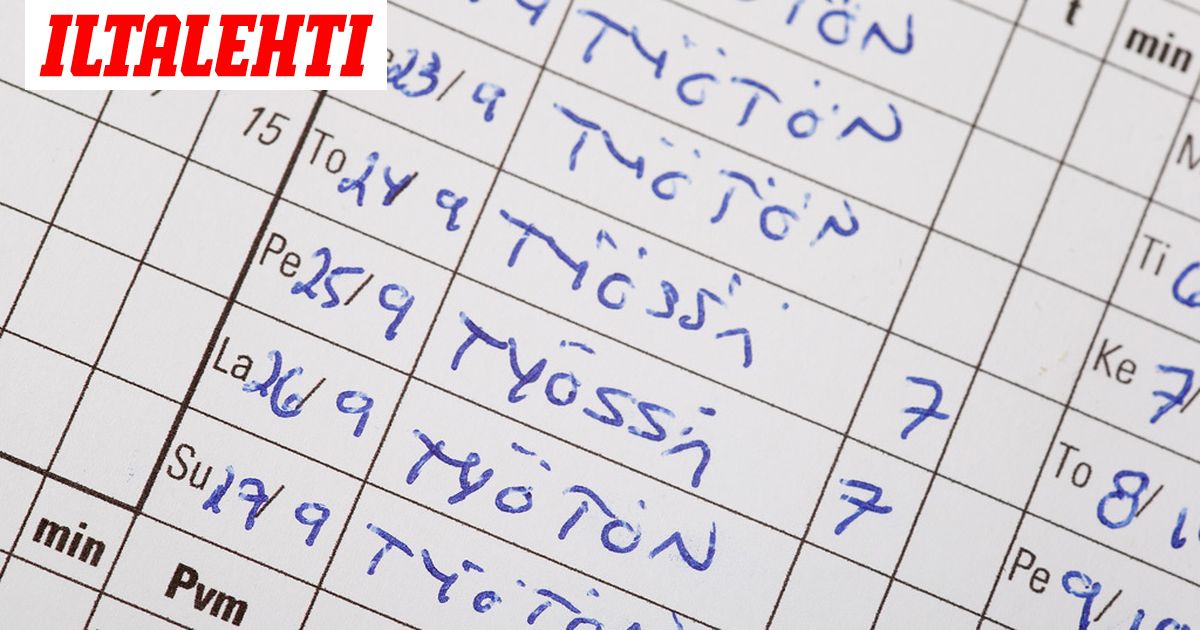 ILTALEHTI
TÖN
9 TYÖTÖN
23/9 TYÖTÖN
15 To 24/9 TYÖSSÄ 7
Pe 25/9 TYÖSSÄ 7
La 26/9 TYÖTÖN
Su 27/9 TYÖTÖN
min Pvm
t min
Ti 6
Ke 7/
To 8/1
Pe 9/10